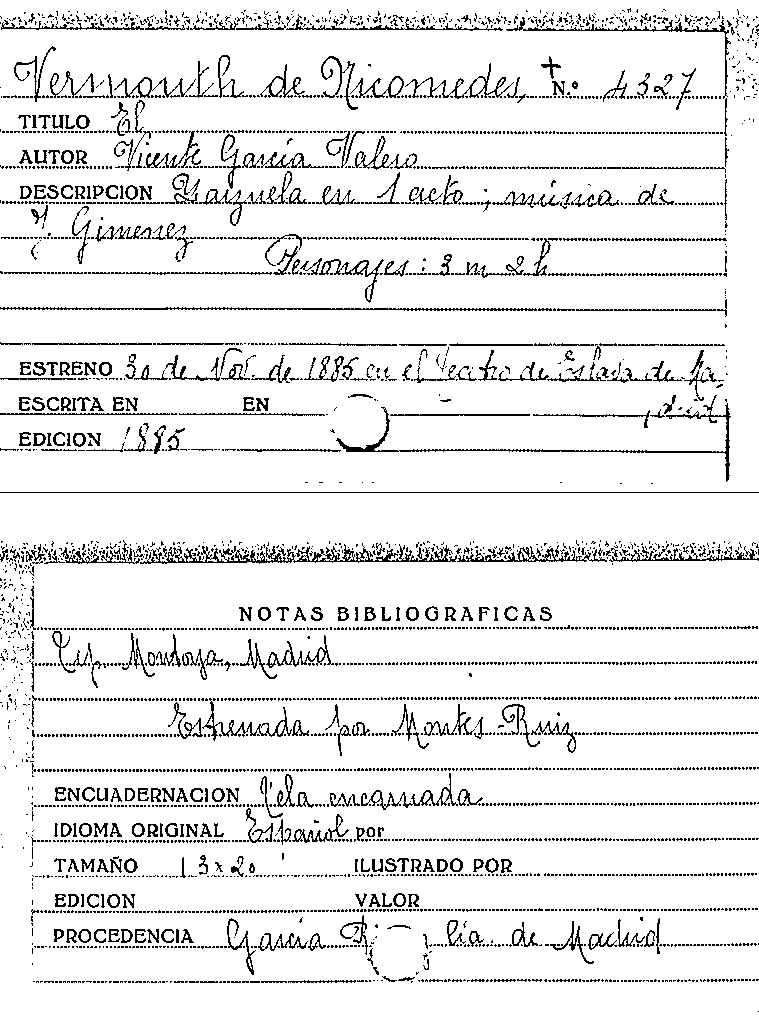 Vermouth de Nicomedes, Nº 4327
TITULO El
AUTOR Vicente García Valero
DESCRIPCION Zarzuela en 1 acto; música de
J. Gimenez
Personajes: 3 m 2 h
ESTRENO 30 de Nov. de 1885 en el Teatro de Eslava de Ma-
ESCRITA EN EN drid
EDICION 1895
NOTAS BIBLIOGRAFICAS
Tip. Montoya, Madrid
Estrenada por Montes-Ruiz
ENCUADERNACION Tela encarnada
IDIOMA ORIGINAL Español por
TAMAÑO 13x20 ILUSTRADO POR
EDICION VALOR
PROCEDENCIA García lía. de Madrid